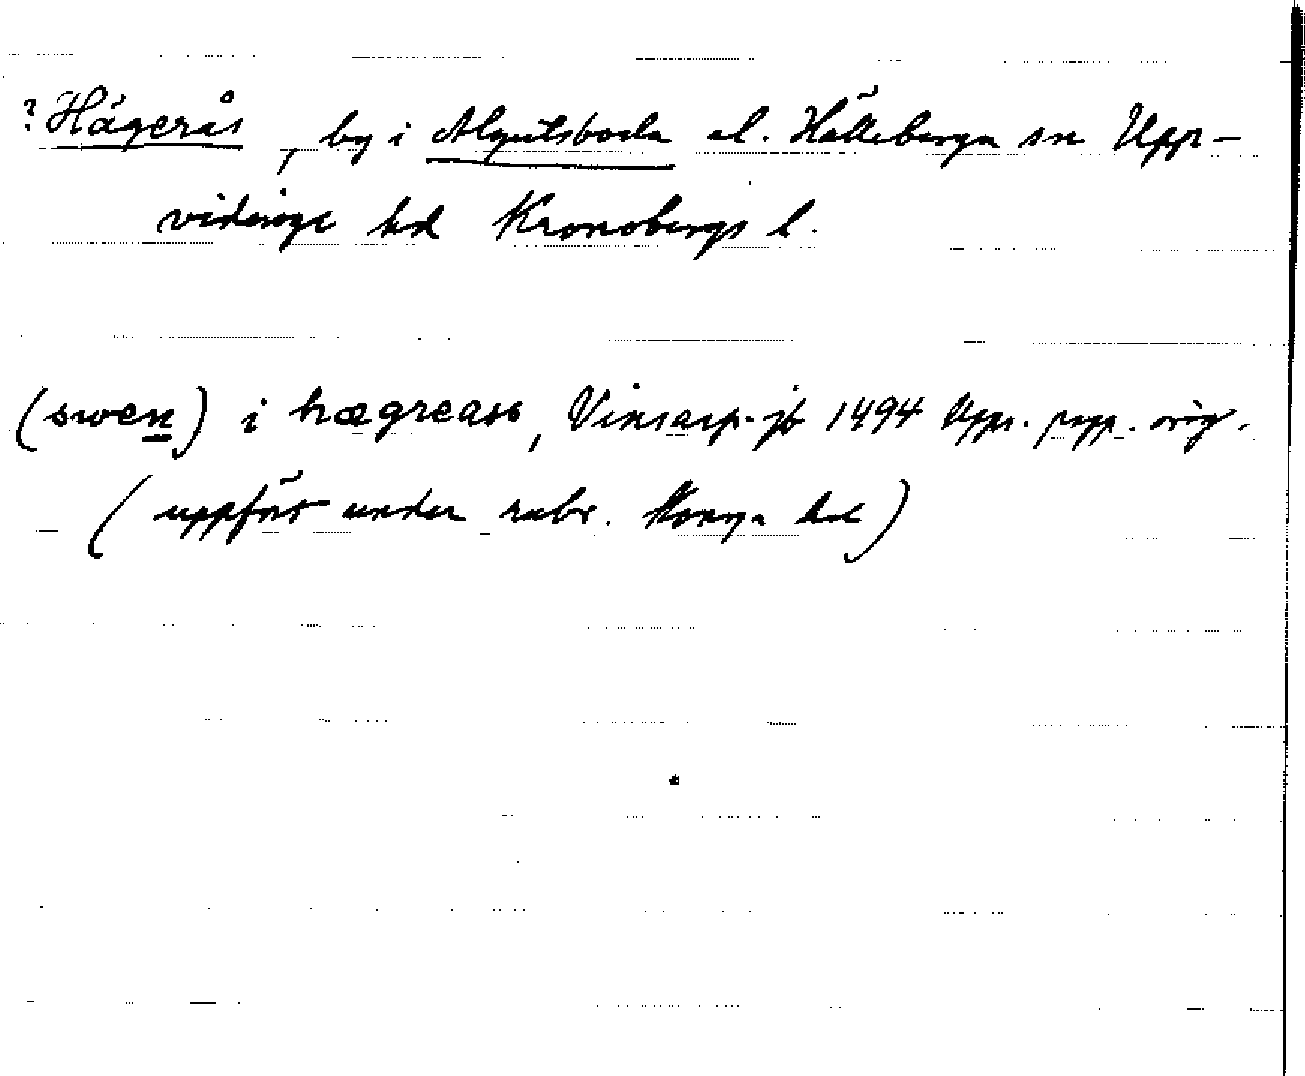 ? Hägerås, by i Algutsboda el. Hälleberga sn Upp-
vidinge hd Kronobergs l.
(swen) i hægreass, Vinsarp. jb 1494 Upps. papp. orig.
(uppfört under rubr. Konga hd)